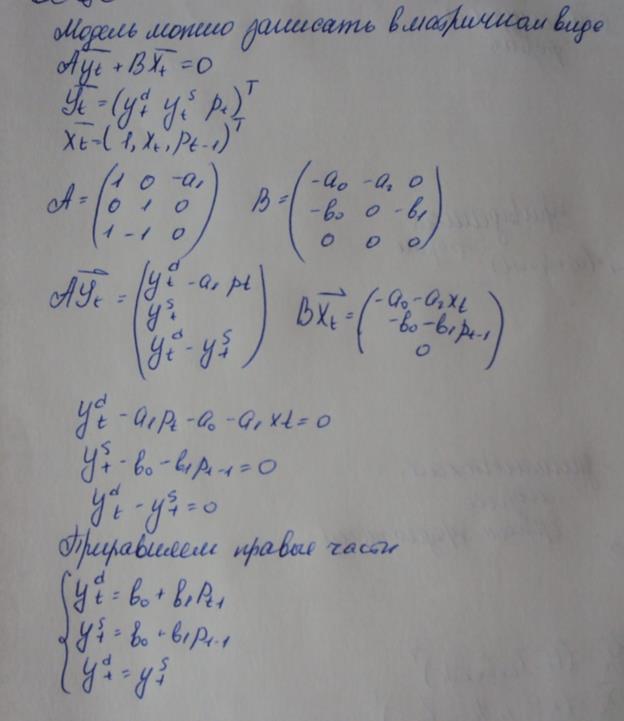 Модель можно записать в матричном виде
Ay⃗t + BX⃗t = 0
Y⃗t = (y^d_t y^s_t pt)^T
x⃗t = (1, xt, pt-1)^T
A = (1 0 -a1; 0 1 0; 1 -1 0) B = (-a0 -a2 0; -b0 0 -b1; 0 0 0)
AY⃗t = (y^d_t - a1 pt; y^s_t; y^d_t - y^s_t) BX⃗t = (-a0 - a2xt; -b0 - b1pt-1; 0)
y^d_t - a1pt - a0 - a1xt = 0
y^s_t - b0 - b1pt-1 = 0
y^d_t - y^s_t = 0
Приравняем правые части
y^d_t = b0 + b1pt-1
y^s_t = b0 + b1pt-1
y^d_t = y^s_t